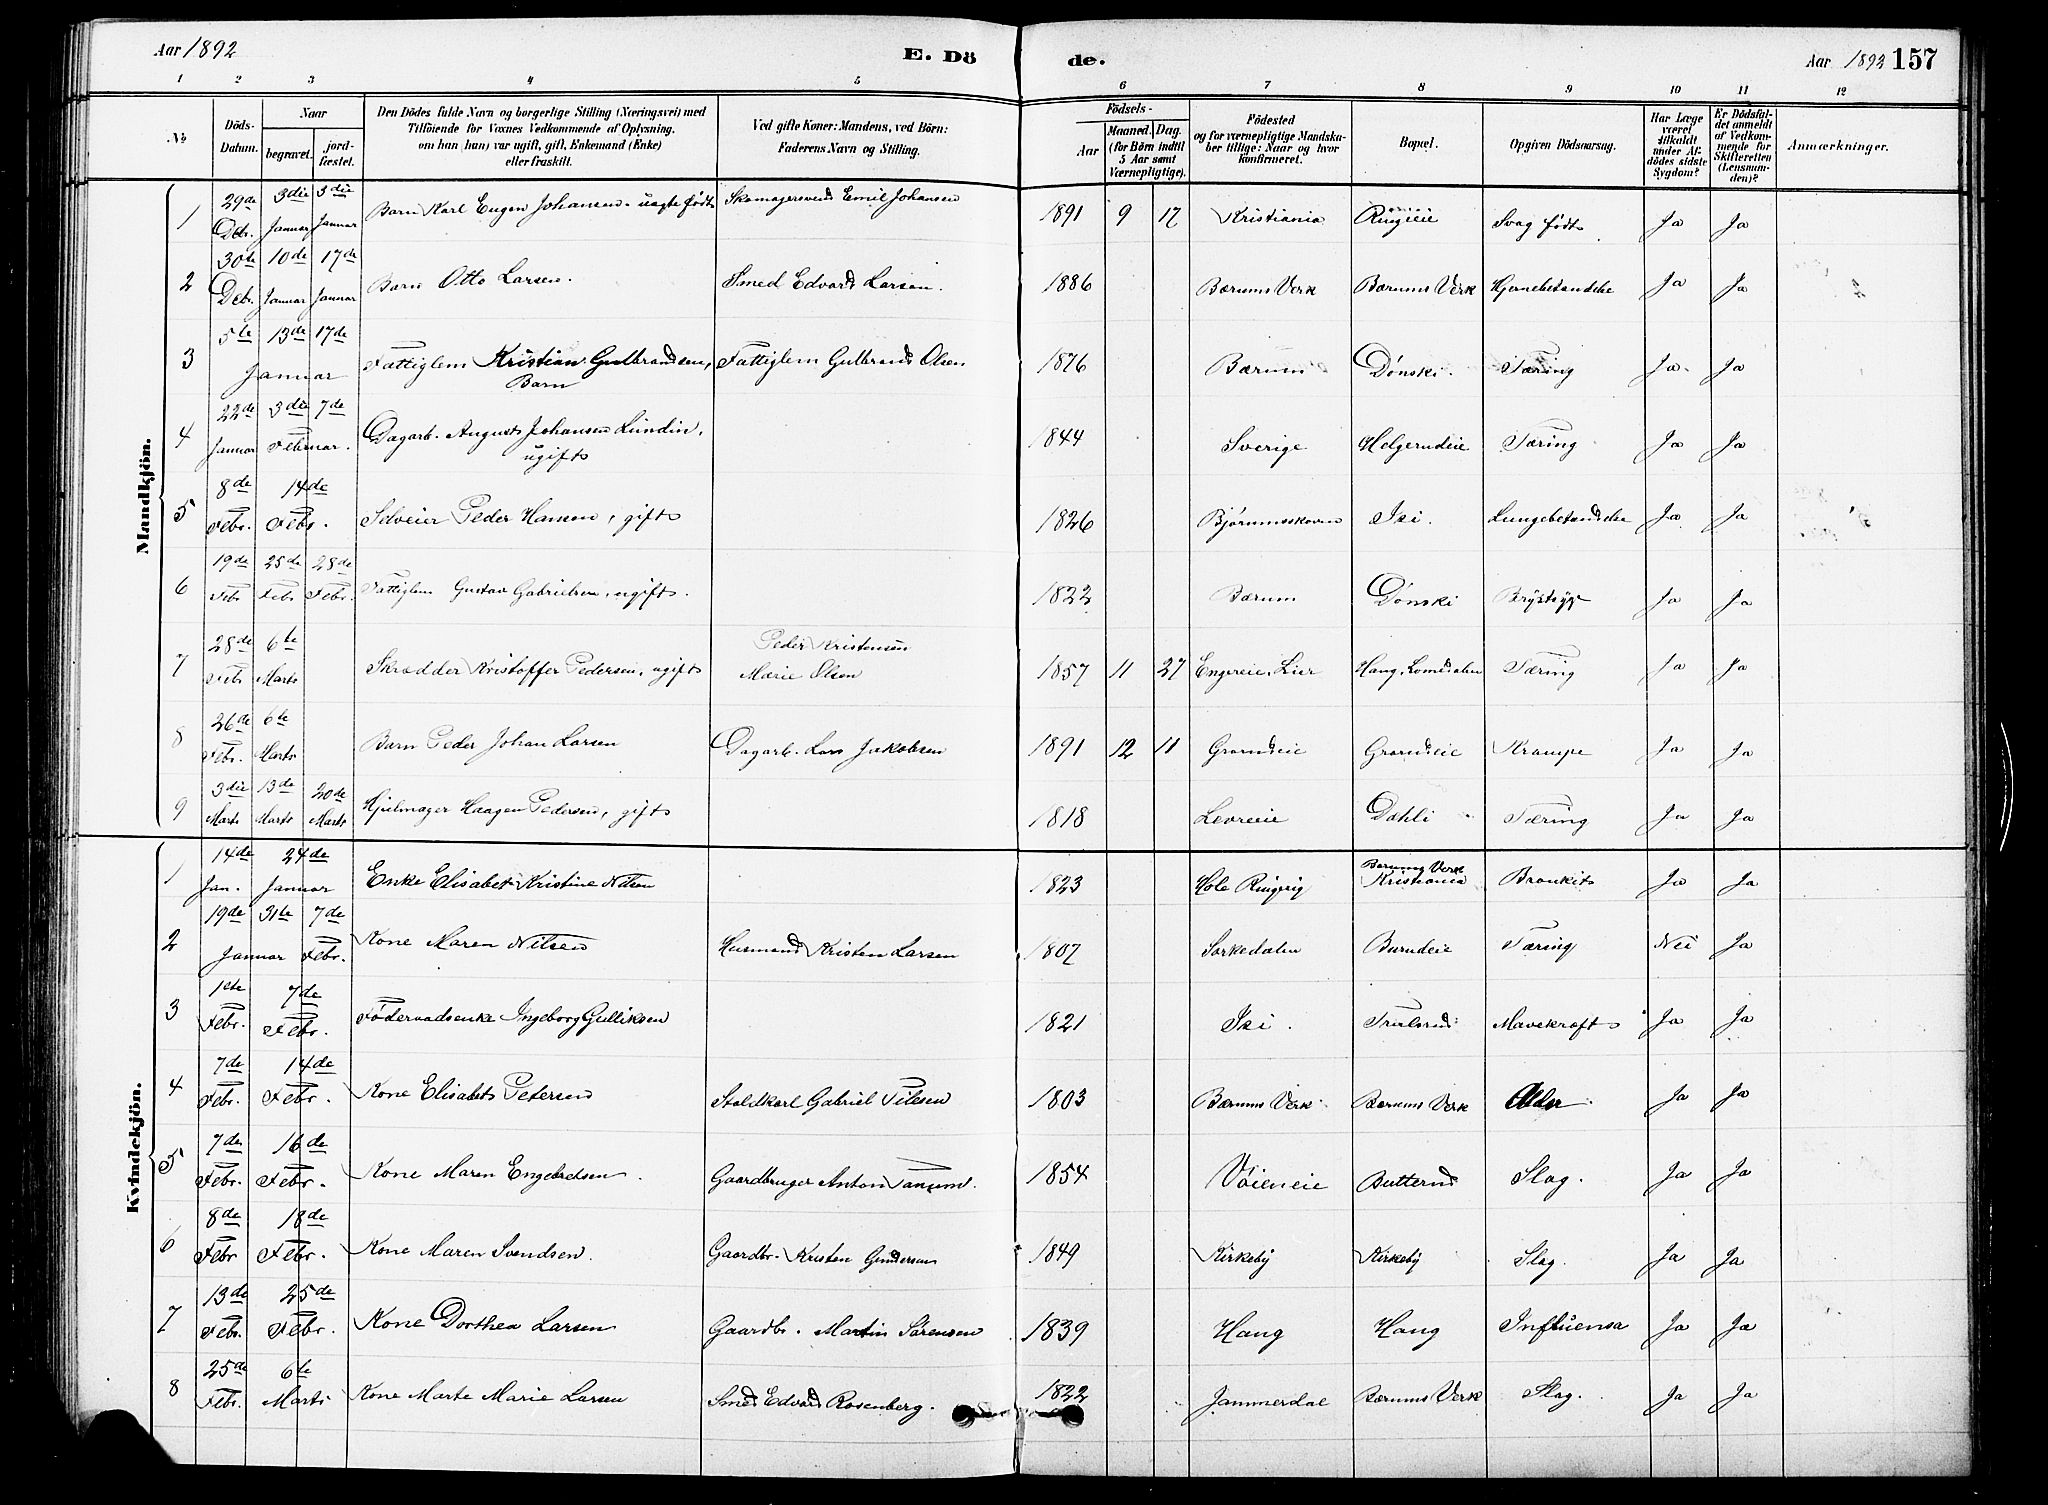 Aar 1892
E. Dö
de.
Aar 1892 157
1 2 3 4 5 6 7 8 9 10 11 12
№
Döds-Datum.
Naar
begravet.
jord-fæstet.
Den Dödes fulde Navn og borgerlige Stilling (Næringsvei) med
Tilföiende for Voxnes Vedkommende af Oplysning,
om han (hun) var ugift, gift, Enkemand (Enke)
eller fraskilt.
Ved gifte Koner: Mandens, ved Börn:
Faderens Navn og Stilling.
Födsels-
Aar
Maaned. Dag.
(for Börn indtil
5 Aar samt
Værnepligtige).
Födested
og for værnepligtige Mandska-
ber tillige: Naar og hvor
konfirmeret.
Bopæl.
Opgiven Dödsaarsag.
Har Læge
været
tilkaldt
under Af-
dödes sidste
Sygdom?
Er Dödsfal-
det anmeldt
af Vedkom-
mende for
Skifteretten
(Lensman-
den)?
Anmærkninger.
Mandkjön.
1 29de Debr. 3die Januar 3die Januar Barn Karl Eugen Johansen. uægte født Skomagersvend Emil Johansen 1891 9 17 Kristiania Ringieie Svag født Ja Ja
2 30te Debr. 10de Januar 17de Januar Barn Otto Larsen. Smed Edvard Larsen. 1886 Bærums Verk Bærums Verk Hjernebetændelse Ja Ja
3 5te 13de 17de Januar Fattiglem Kristian Gulbrandsen, Barn Fattiglem Gulbrand Olsen 1876 Bærum Dønski. Tæring Ja Ja
4 22de Januar 3die 7de Februar. Dagarb. August Johansen Lundin, ugift 1844 Sverige Helgerudeie Tæring Ja Ja
5 8de Febr. 14de Febr. Selveier Peder Hansen, gift 1826 Bjørumsskoven Isi. Lungebetændelse Ja Ja
6 19de Febr 25de Febr 28de Febr. Fattiglem Gustav Gabrielsen, ugift. 1822 Bærum Dønski Brystsyge Ja Ja
7 28de Febr 6te Marts Skrædder Kristoffer Pedersen, ugift Peder Kristensen Marie Olsen 1857 11 27 Engereie, Lier Haug, Lomedalen Tæring Ja Ja
8 26de Febr. 6te Marts Barn Peder Johan Larsen Dagarb. Lars Jakobsen 1891 12 11 Gramdeie Gramdeie Krampe Ja Ja
9 3die Marts 13de Marts 20de Marts Hjulmager Haagen Pedersen, gift 1818 Levreeie Dahli Tæring Ja Ja
Kvindekjön.
1 14de Jan. 24de Januar Enke Elisabet Kristine Nilsen 1823 Hole Ringerig Bærums Verk Kristiania Bronkit Ja Ja
2 19de 31te Januar 7de Febr. Kone Maren Nilsen Husmand Kristen Larsen 1807 Sørkedalen Burudeie Tæring Nei Ja
3 1ste Febr. 7de Febr. Føderaadsenke Ingeborg Gulliksen 1821 Isi. Trulsrud Mavekræft Ja Ja
4 7de Febr. 14de Febr. Kone Elisabet Petersen Staldkarl Gabriel Pilesen 1803 Bærums Verk Bærums Verk Alder. Ja Ja
5 7de Febr. 16de Febr. Kone Maren Engebretsen. Gaardbruger Anton Tanum. 1854 Vøieneie Butterud Slag. Ja Ja
6 8de Febr 18de Febr. Kone Maren Svendsen. Gaardbr. Kristen Gundersen 1849 Kirkeby Kirkeby Slag. Ja Ja
7 13de Febr. 25de Febr. Kone Dorthea Larsen Gaardbr. Martin Sørensen 1839 Haug Haug Influensa Ja Ja
8 25de Febr. 6te Marts Kone Marte Marie Larsen Smed Edvard Rosenberg. 1822 Jammerdal Bærums Verk Slag. Ja Ja